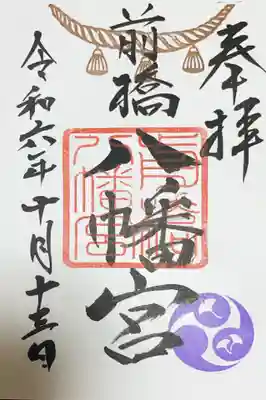 奉拝
前橋八幡宮
令和六年十月十三日